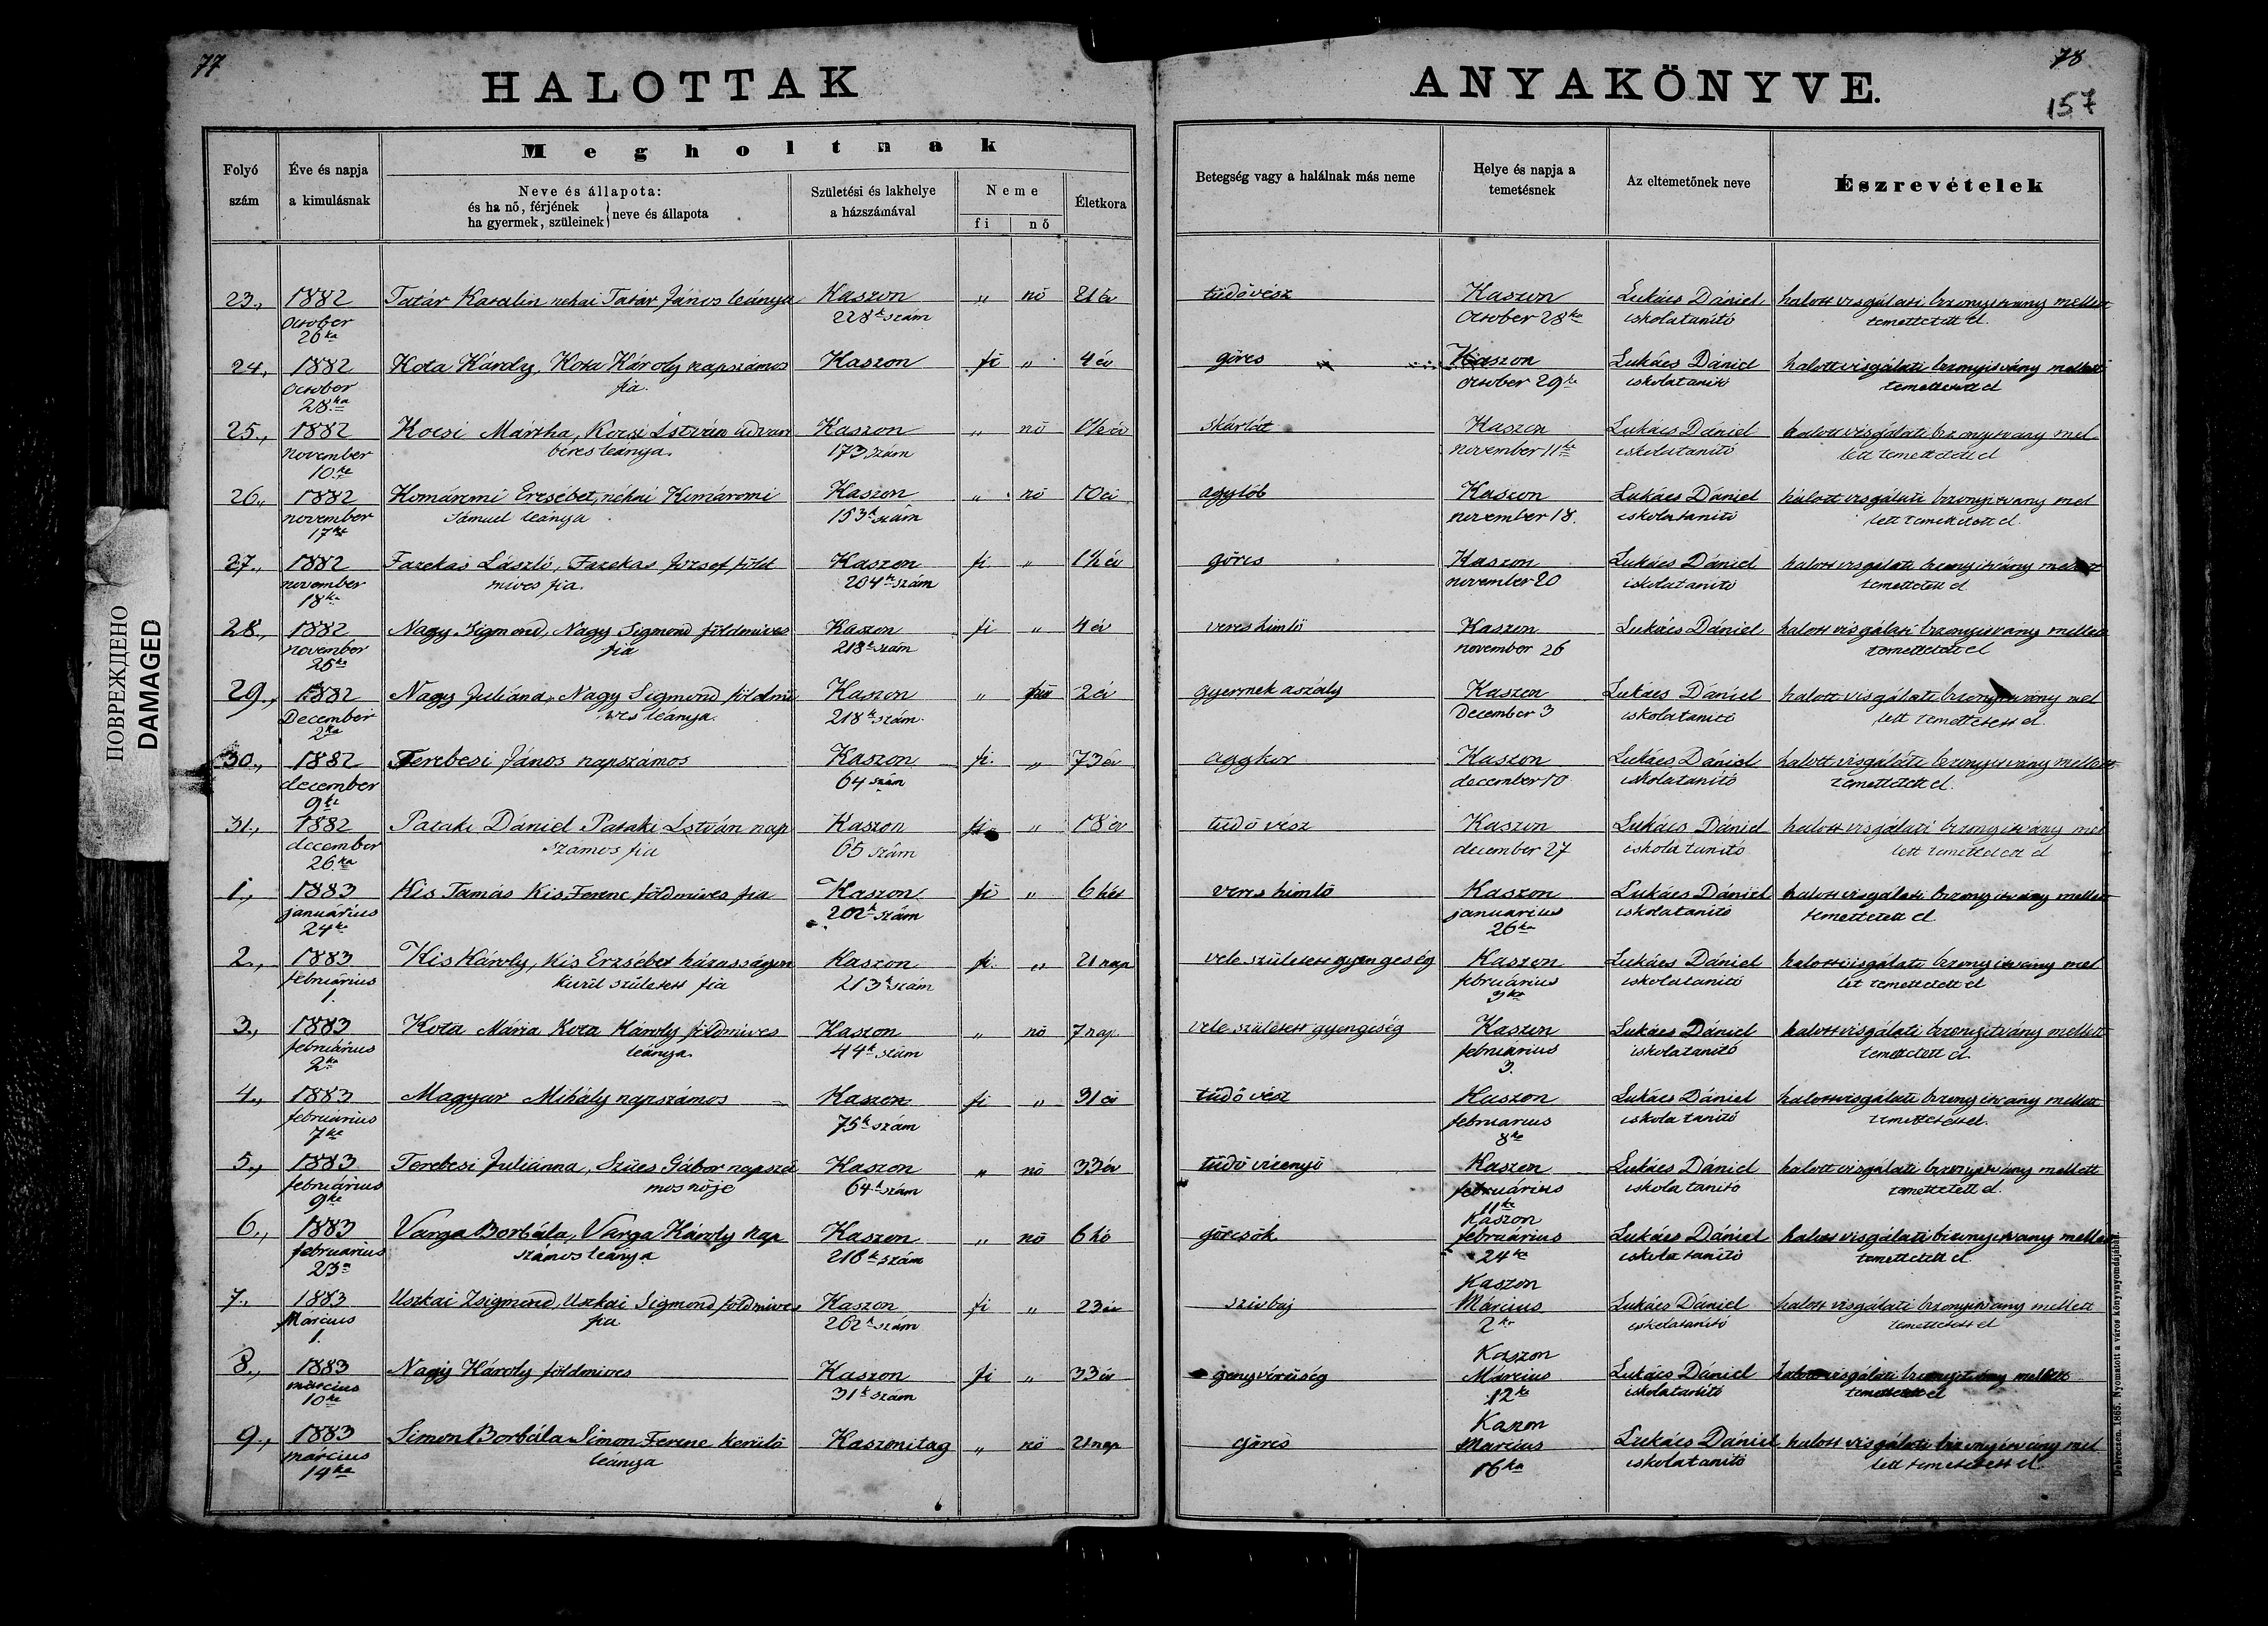 77
HALOTTAK
Megholtnak
Folyó szám
Éve és napja a kimulásnak
Neve és állapota:
és ha nő, férjének
ha gyermek, szüleinek
neve és állapota
Születési és lakhelye a házszámával
Neme
fi
nő
Életkora
78
157
ANYAKÖNYVE.
Betegség vagy a halálnak más neme
Helye és napja a temetésnek
Az eltemetőnek neve
Észrevételek
23., 1882 Tatár Katalin néhai Tatár János leánya Kaszon „ nő 21 év tüdővész Kaszon Lukács Dániel halott visgálati bizonyitvány mellett
october 26ka 228k szám October 28ka iskolatanitó temettetett el.
24, 1882 Kota Károly, Kota Károly napszámos Kaszon fi „ 4 év görcs Kaszon Lukács Dániel halott visgálati bizonyitvány mellett
October 28ka fia. october 29k iskolatanitó temettetett el
25., 1882 Kocsi Mártha, Kocsi István udvari Kaszon „ nő 1½ év Skárlát Kaszon Lukács Dániel halott visgálati bizonyitvány mel
november 10ke béres leánya. 173 szám november 11ke iskolatanitó lett temettetett el
26., 1882 Komáromi Erzsébet, néhai Komáromi Kaszon „ nő 10 év agylob Kaszon Lukács Dániel halott visgálati bizonyitvány mel
november 17ke Sámuel leánya 153k szám november 18. iskolatanitó lett temettetett el.
27., 1882 Fazekas László, Fazekas József föld Kaszon fi „ 1½ év görcs Kaszon Lukács Dániel halott visgálati bizonyitvány mellett
november 18ka mives fia. 204k szám november 20 iskolatanitó temettetett el
28., 1882 Nagy Sigmond, Nagy Sigmond földmives Kaszon fi „ 4 év veres himlő Kaszon Lukács Dániel halott visgálati bizonyitvány mellett
november 25ke fia 218k szám november 26 temettetett el
29., 1882 Nagy Juliána, Nagy Sigmond földmi Kaszon „ 2 év gyermek aszály Kaszon Lukács Dániel halott visgálati bizonyitvány mel
December 2ka ves leánya. 218k szám. December 3 iskolatanitó lett temettetett el.
30., 1882 Terebesi János napszámos Kaszon fi. „ 73 év aggkor Kaszon Lukács Dániel halott visgálati bizonyitvány mellett
december 9ke 64 szám december 10 iskolatanitó temettetett el.
31., 1882 Pataki Dániel Pataki István nap Kaszon fi „ 18 év tüdő vész Kaszon Lukács Dániel halott visgálati bizonyitvány mel
december 26ka számos fia 65 szám december 27 iskola tanitó lett temettetett el
1., 1883 Kis Tamás Kis Ferenc földmives fia Kaszon fi „ 6 hét veres himlő Kaszon Lukács Dániel halott visgálati bizonyitvány mellett
januárius 24ke 202k szám januarius 26ka iskolatanitó temettetett el
2., 1883 Kis Károly, Kis Erzsébet házasságon Kaszon fi. „ 21 nap vele született gyengeség Kaszon Lukács Dániel halott visgálati bizonyitvány mel
februárius 1. kivül született fia 213k szám februárius 3ka iskolatanitó let temettetett el
3., 1883 Kota Mária Kota Károly földmives Kaszon „ nő 7 nap vele született gyengeség Kaszon Lukács Dániel halott visgálati bizonyitvány mellett
februárius 2ka leánya. 44k szám februárius 3. iskolatanitó temettetett el.
4., 1883 Magyar Mihály napszámos Kaszon fi „ 31 év tüdő vész Kaszon Lukács Dániel halott visgálati bizonyitvány mellett
februárius 7ke 75k szám februarius 8ka iskola tanitó temettetett el.
5., 1883 Terebesi Juliánna, Szücs Gábor napszá Kaszon „ nő 33 év tüdő vizenyő Kaszon Lukács Dániel halott visgálati bizonyitvány mellett
februárius 9ke mos nője 64k szám februárius 11ke iskola tanitó temettetett el.
6., 1883 Varga Borbála, Varga Károly nap Kaszon „ nő 6 hó görcsök Kaszon februárius Lukács Dániel halott visgálati bizonyitvány mellett
februarius 23a számos leánya 216k szám 24ke iskola tanitó temettetett el.
7., 1883 Uszkai Zsigmond, Uszkai Sigmond földmives Kaszon fi „ 23 év szivbaj Kaszon Március Lukács Dániel halott visgálati bizonyitvány mellett
Március 1. fia 262k szám 2ka iskolatanitó temettetett el
8., 1883 Nagy Károly földmives Kaszon fi „ 33 év genyvérüség Kaszon Március Lukács Dániel halott visgálati bizonyitvány mellett
március 10ke 31k szám 12ke iskolatanitó temettetett el
9., 1883 Simon Borbála Simon Ferenc kerülő Kaszonitag „ nő 21 nap Görcs Kaszon Március Lukács Dániel halott visgálati bizonyitvány mel
március 14ke leánya 16ka iskolatanitó lett temettetett el.
Debreczen. 1865. Nyomatott a város könyvnyomdájában.
ПОВРЕЖДЕНО
DAMAGED